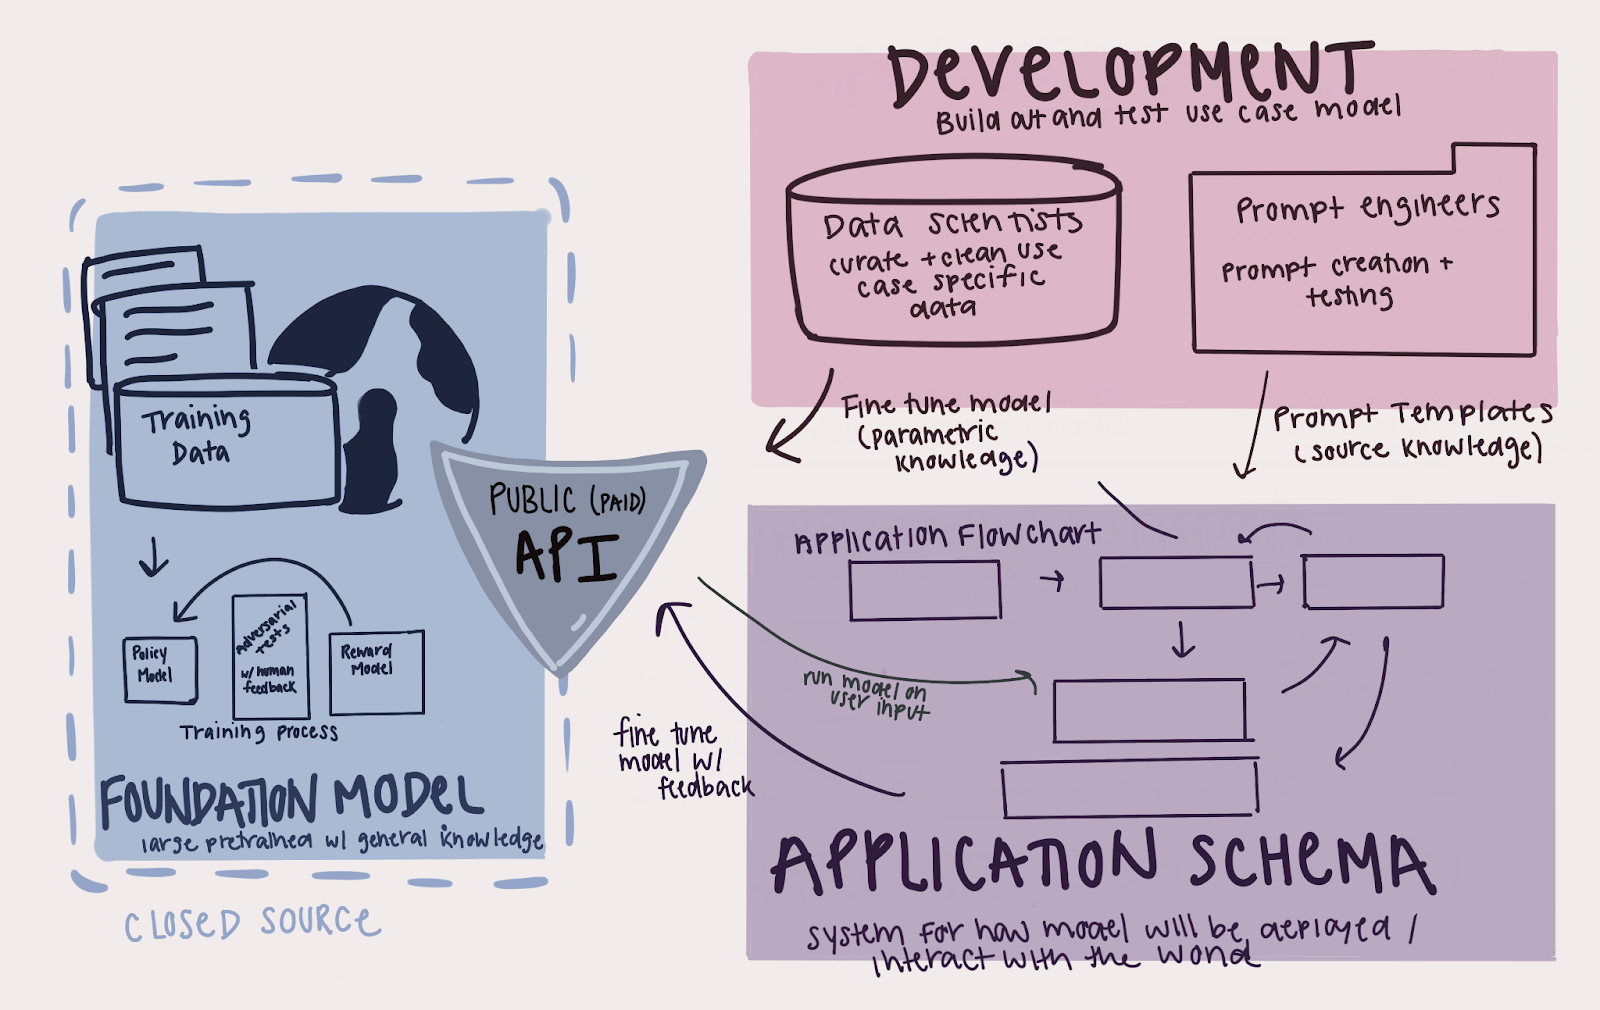 DEVELOPMENT
Build out and test use case model
Data scientists
curate + clean use
case specific
data
Prompt engineers
prompt creation +
testing
Fine tune model
(parametric
knowledge)
Prompt Templates
(source knowledge)
Training
Data
PUBLIC (PAID)
API
Policy
Model
Adversarial
tests
w/ human
feedback
Reward
Model
Training process
FOUNDATION MODEL
large pretrained w/ general knowledge
CLOSED SOURCE
Application Flowchart
run model on
user input
fine tune
model w/
feedback
APPLICATION SCHEMA
system for how model will be deployed /
interact with the world